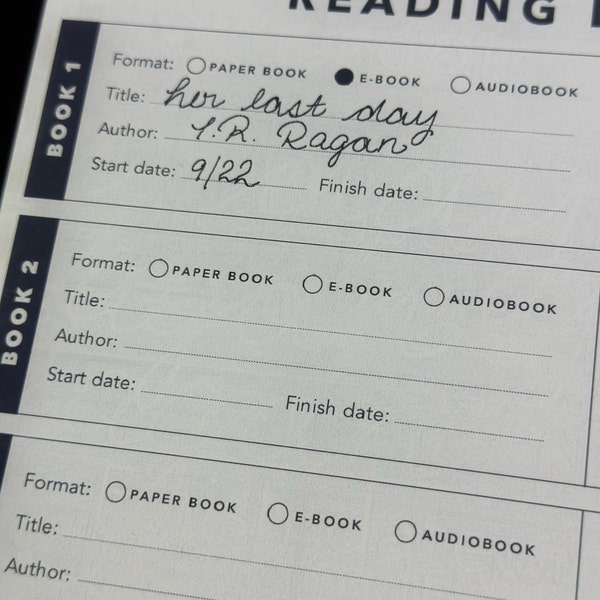 READING
BOOK 1
Format: PAPER BOOK E-BOOK AUDIOBOOK
Title: her last day
Author: T.R. Ragan
Start date: 9/22 Finish date:
BOOK 2
Format: PAPER BOOK E-BOOK AUDIOBOOK
Title:
Author:
Start date: Finish date:
Format: PAPER BOOK E-BOOK AUDIOBOOK
Title:
Author: